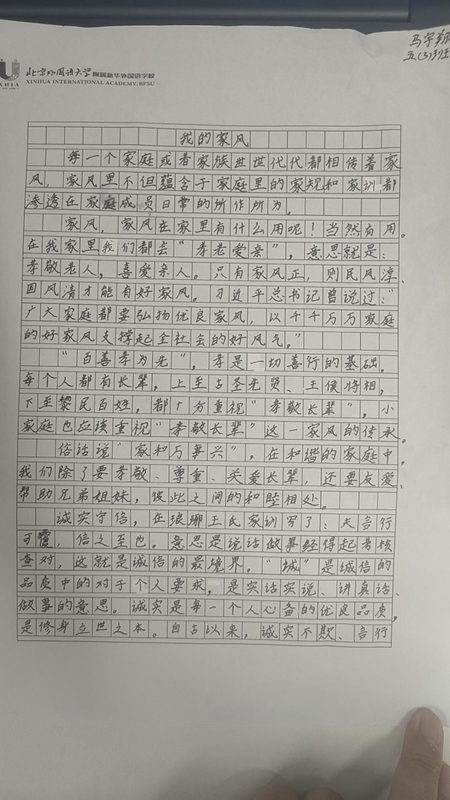 马宇翔
五(3)班
北京外国语大学附属新华外国语学校
XINHUA INTERNATIONAL ACADEMY, BFSU
我的家风
每一个家庭或者家族世世代代都相传着家
风，家风里不但蕴含于家庭里的家规和家训都
渗透在家庭成员日常的所作所为。
家风，家风在家里有什么用呢！当然有用。
在我家里我们都会“孝老爱亲”，意思就是：
孝敬老人，喜爱亲人。只有家风正，则民风淳、
国风清才能有好家风。习近平总书记曾说过：“
广大家庭都要弘扬优良家风，以千千万万家庭
的好家风支撑起全社会的好风气。”
“百善孝为先”，孝是一切善行的基础。
每个人都有长辈，上至古圣先贤、王侯将相，
下至黎民百姓，都十分重视“孝敬长辈”，小
家庭也应该重视“孝敬长辈”这一家风的传承。
俗话说“家和万事兴”，在和谐的家庭中，
我们除了要孝敬、尊重、关爱长辈，还要友爱、
帮助兄弟姐妹，彼此之间的和睦相处。
诚实守信，在琅琊王氏家训写了：夫言行
可覆，信之至也。意思是说话做事经得起考核
查对，这就是诚信的最境界。“城”是诚信的
品质中的对于个人要求，是实话实说、讲真话、
做事的意思。诚实是每一个人心备的优良品质，
是修身立世之本。自古以来，诚实不欺、言行